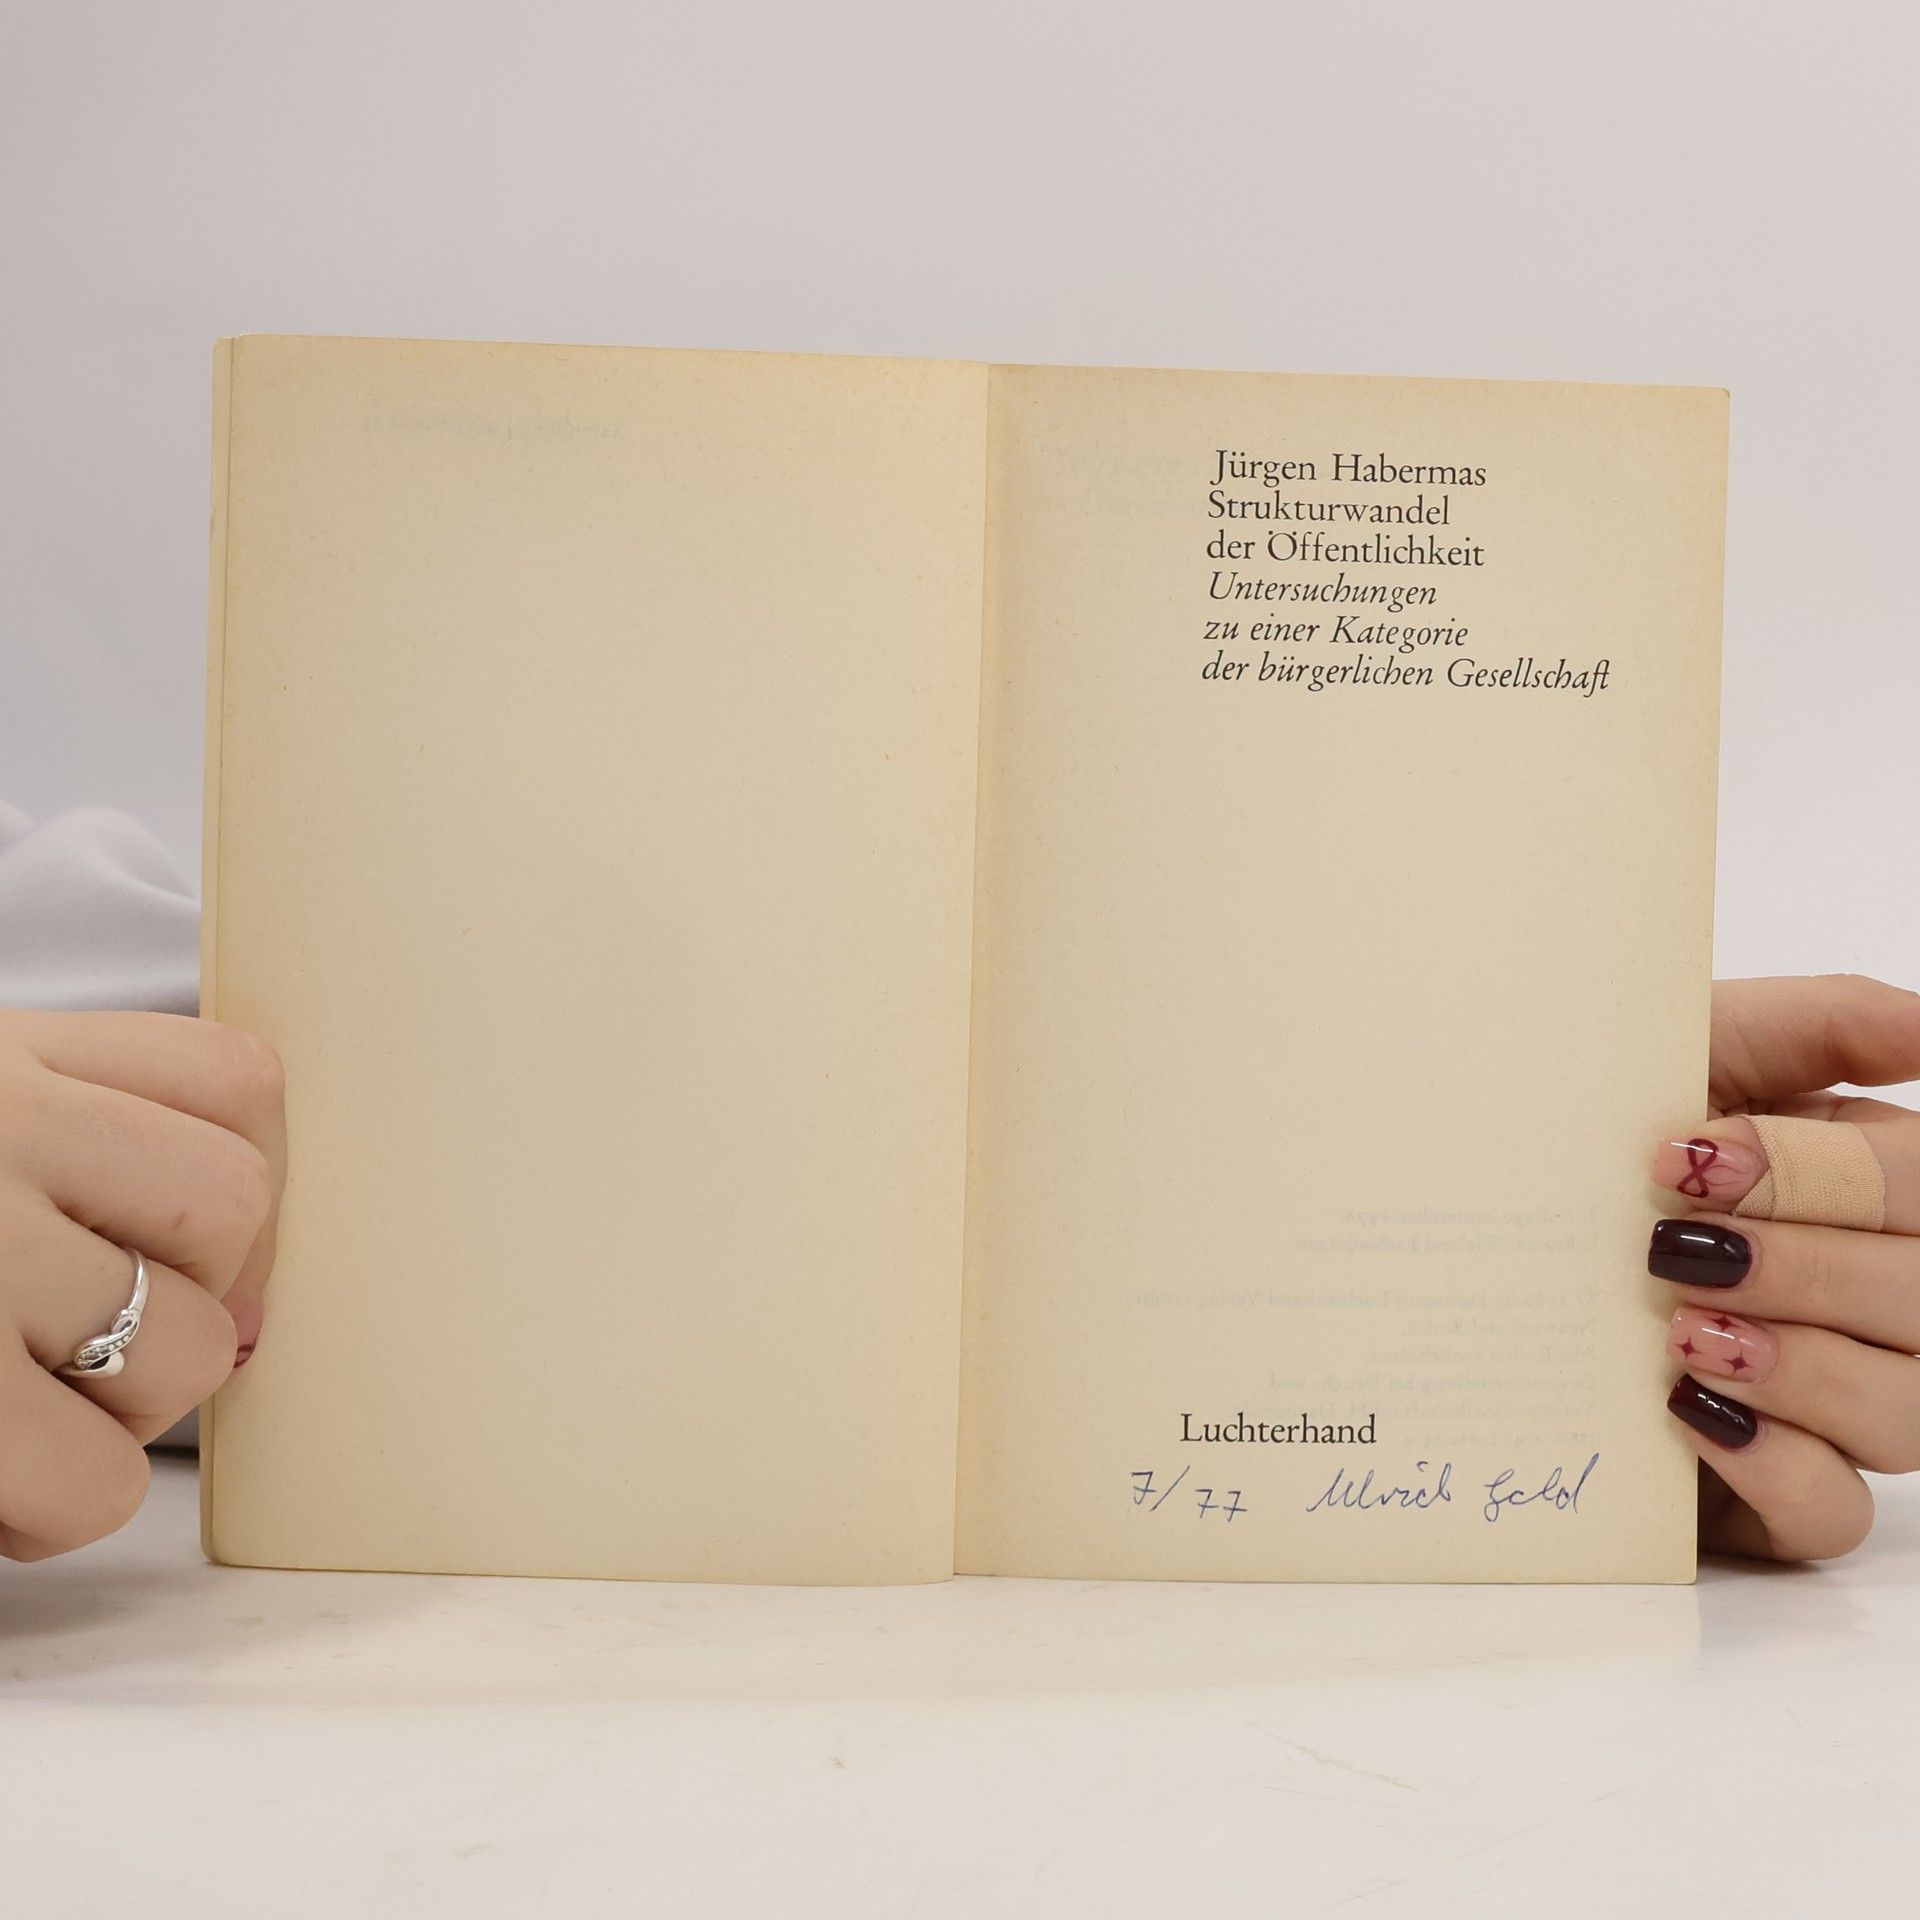 Jürgen Habermas
Strukturwandel
der Öffentlichkeit
Untersuchungen
zu einer Kategorie
der bürgerlichen Gesellschaft
Luchterhand
7/77 Ulrich